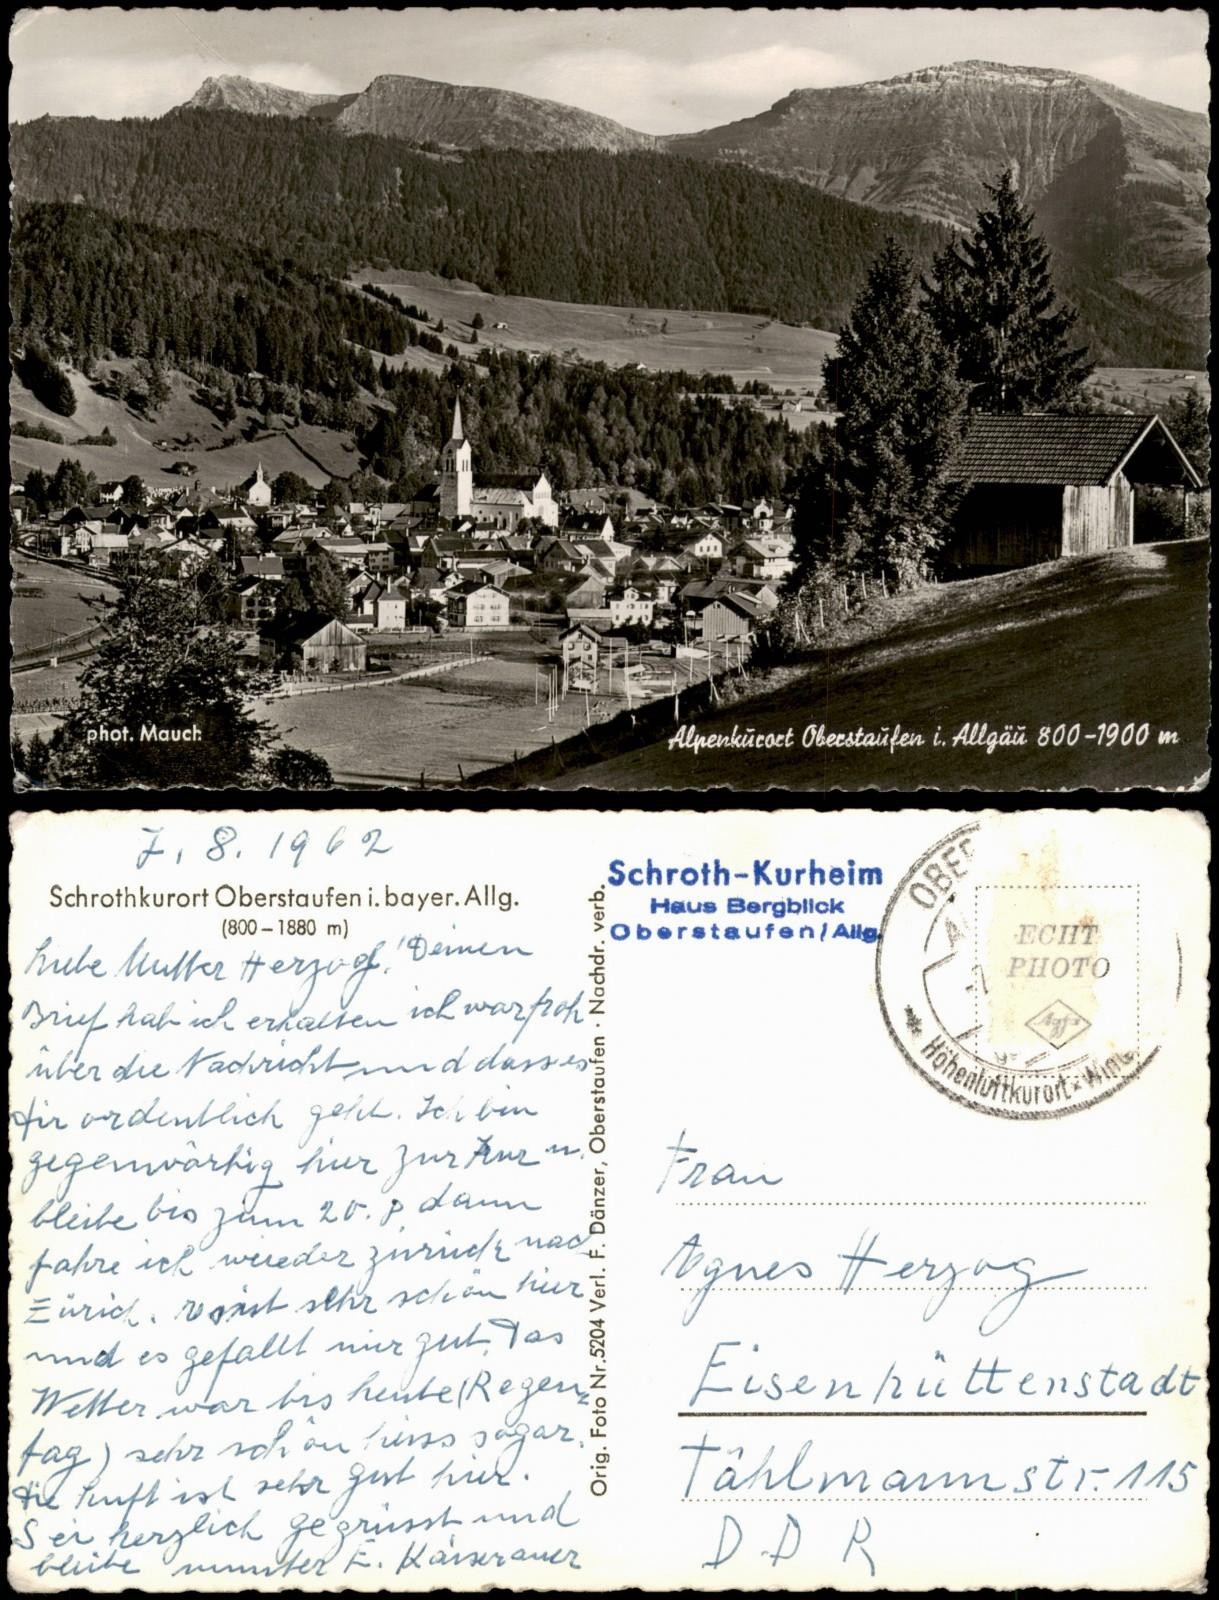 phot. Mauch
Alpenkurort Oberstaufen i. Allgäu 800-1900 m
7. 8. 1962
Schrothkurort Oberstaufen i. bayer. Allg.
(800-1880 m)
Liebe Mutter Herzog! Deinen
Brief hab ich erhalten ich war froh
über die Nachricht und dass es
Dir ordentlich geht. Ich bin
gegenwärtig hier zur Kur u.
bleibe bis zum 20. 8. dann
fahre ich wieder zurück nach
Zürich. ist sehr schön hier
und es gefällt mir gut. Das
Wetter war bis heute (Regen-
tag) sehr schön heiss sogar.
Die Luft ist sehr gut hier.
Sei herzlich gegrüsst und
bleibe munter E. Kaiserauer
Orig. Foto Nr. 5204 Verl. F. Dänzer, Oberstaufen · Nachdr. verb.
Schroth-Kurheim
Haus Bergblick
Oberstaufen/Allg.
OBER
Höhenluftkurort x Wint
ECHT
PHOTO
Agfa
Frau
Agnes Herzog
Eisenhüttenstadt
Tählmannstr. 115
D.D.R